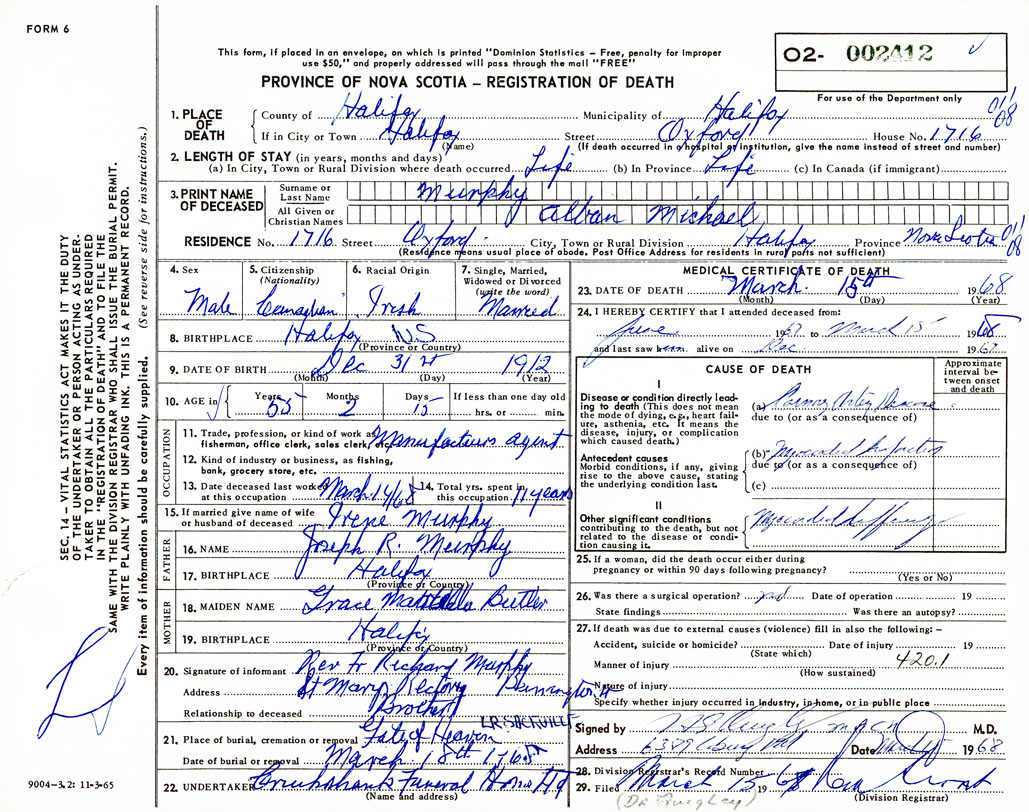 FORM 6
This form, if placed in an envelope, on which is printed "Dominion Statistics – Free, penalty for improper
use $50," and properly addressed will pass through the mail "FREE"
PROVINCE OF NOVA SCOTIA – REGISTRATION OF DEATH
O2- 002412
For use of the Department only
SEC. 14 – VITAL STATISTICS ACT MAKES IT THE DUTY
OF THE UNDERTAKER OR PERSON ACTING AS UNDER-
TAKER TO OBTAIN ALL THE PARTICULARS REQUIRED
IN THE "REGISTRATION OF DEATH" AND TO FILE THE
SAME WITH THE DIVISION REGISTRAR WHO SHALL ISSUE THE BURIAL PERMIT.
WRITE PLAINLY WITH UNFADING INK. THIS IS A PERMANENT RECORD.
Every item of information should be carefully supplied. (See reverse side for instructions.)
1. PLACE OF DEATH
County of Halifax Municipality of Halifax 011/08
If in City or Town Halifax Street Oxford House No. 1716
(Name) (If death occurred in a hospital or institution, give the name instead of street and number)
2. LENGTH OF STAY (in years, months and days)
(a) In City, Town or Rural Division where death occurred Life (b) In Province Life (c) In Canada (if immigrant)
3. PRINT NAME OF DECEASED
Surname or Last Name Murphy
All Given or Christian Names Alban Michael
RESIDENCE No. 1716 Street Oxford City, Town or Rural Division Halifax Province Nova Scotia 011/08
(Residence means usual place of abode. Post Office Address for residents in rural parts not sufficient)
4. Sex 5. Citizenship (Nationality) 6. Racial Origin 7. Single, Married, Widowed or Divorced (write the word)
Male Canadian Irish Married
8. BIRTHPLACE Halifax N.S
(Province or Country)
9. DATE OF BIRTH Dec 31st 1912
(Month) (Day) (Year)
10. AGE in Years 55 Months 2 Days 15 If less than one day old hrs. or min.
OCCUPATION
11. Trade, profession, or kind of work as fisherman, office clerk, sales clerk, etc. Manufacturers agent
12. Kind of industry or business, as fishing, bank, grocery store, etc.
13. Date deceased last worked at this occupation March 14/68 14. Total yrs. spent in this occupation 11 years
15. If married give name of wife or husband of deceased Irene Murphy
FATHER
16. NAME Joseph R. Murphy
17. BIRTHPLACE Halifax
(Province or Country)
MOTHER
18. MAIDEN NAME Grace Butler
19. BIRTHPLACE Halifax
(Province or Country)
20. Signature of informant Rev Fr Richard Murphy
Address St Marys Rectory
Relationship to deceased Brother
LR. SACKVILLE
21. Place of burial, cremation or removal Gate of Heaven
Date of burial or removal March 18th
22. UNDERTAKER Cruikshanks Funeral Home
(Name and address)
9004-3.2: 11-3-65
MEDICAL CERTIFICATE OF DEATH
23. DATE OF DEATH March 15th 1968
(Month) (Day) (Year)
24. I HEREBY CERTIFY that I attended deceased from:
June 1967 to March 15 1968
and last saw him alive on Dec 1967
CAUSE OF DEATH
Approximate interval between onset and death
I
Disease or condition directly leading to death (This does not mean the mode of dying, e.g., heart failure, asthenia, etc. It means the disease, injury, or complication which caused death.)
(a) Coronary Artery Disease
due to (or as a consequence of)
Antecedent causes
Morbid conditions, if any, giving rise to the above cause, stating the underlying condition last.
(b) Myocardial Infarction
due to (or as a consequence of)
(c)
II
Other significant conditions contributing to the death, but not related to the disease or condition causing it.
25. If a woman, did the death occur either during
pregnancy or within 90 days following pregnancy?
(Yes or No)
26. Was there a surgical operation? Date of operation 19
State findings Was there an autopsy?
27. If death was due to external causes (violence) fill in also the following: –
Accident, suicide or homicide? Date of injury 19
(State which)
420.1
Manner of injury
(How sustained)
Nature of injury
Specify whether injury occurred in industry, in home, or in public place
Signed by M.D.
Address Date 1968
28. Division Registrar's Record Number
29. Filed March 15 1968
(Division Registrar)
(Dr Quigley)